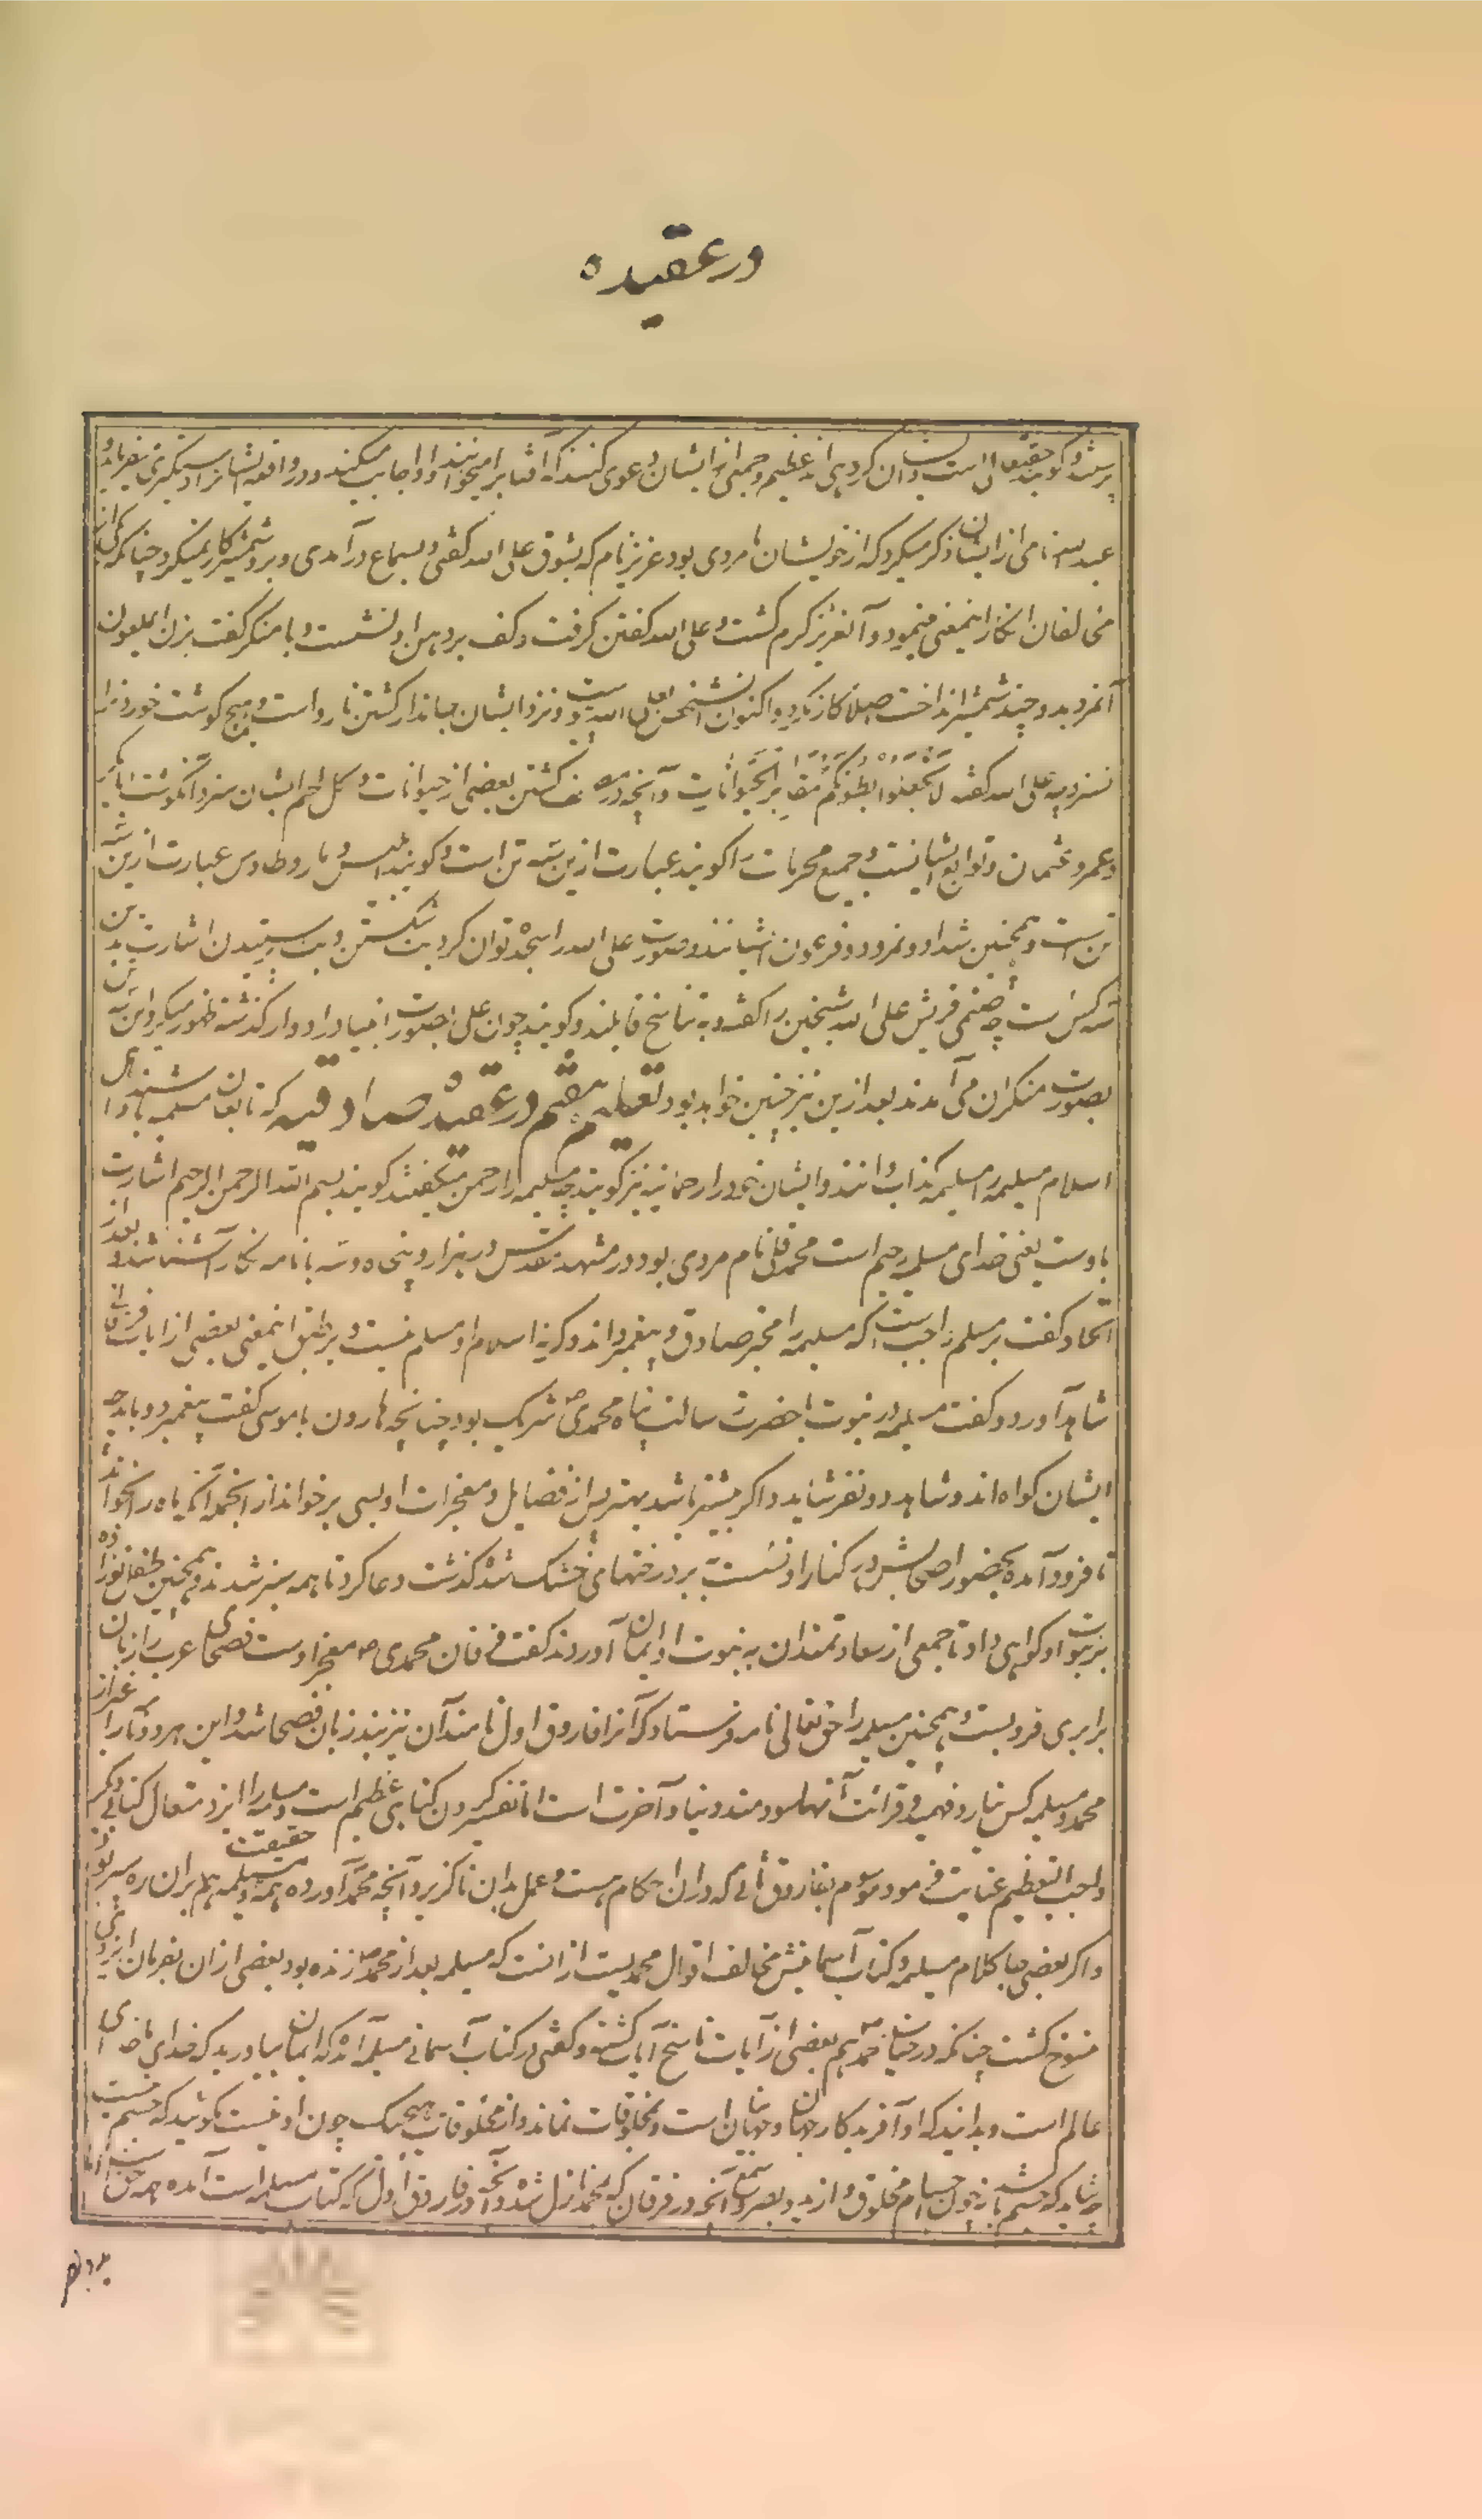 در عقیده
پرستند و گویند حقیقة علی است و آن گروهی اند عظیم و جمعی از ایشان دعوی کنند که آفتاب را میخوانند و او اجابت میکند و در واقعه ایشانرا دستگیری میفرماید و
عبد الله نامی از ایشان ذکر میکرد که از خویشان ما مردی بود عزیز نام که بشوق علی الله گفتی و بسماع در آمدی و برو شمشیر کار نمیکرد چنانکه یکی از
مخالفان انکار اینمعنی مینمود و آنعزیز گرم گشت و علی الله گفتن گرفت و کف بر دهن او نشست و با منکر گفت بزن ای ملعون
آنمرد بدو چند شمشیر انداخت اصلا کار نکرد و اکنون آنشخص علی اللهیست و نزد ایشان جاندار کشتن نا رواست و هیچ گوشت خوردن را
نسزد چه علی الله گفته لا تجعلوا بطونکم مقابر الحیوانات و آنچه در مصحف کشتن بعضی از حیوانات و اکل لحم ایشان سزد آنگوشت ابابکر
و عمر و عثمان و توابع ایشانست و جمیع محرمات را گویند عبارت ازین سه تن است و گویند ابلیس و مار و طاوس عبارت ازین سه
تن است و همچنین شداد و نمرود و فرعون ایشانند و صورت علی الله را سجده توان کرد بت شکستن و بت پرستیدن اشارت بدین
سه کس است چه صنمی قریش علی الله شیخین را گفته و به تناسخ قایلند و گویند چون علی بصورت انبیا در ادوار گذشته ظهور میکرد این سه تن
بصورت منکران می آمدند بعد ازین نیز چنین خواهد بود تعلیم هفتم در عقیده صادقیه که تابعان مسیلمه باشند اهل
اسلام مسیلمه را مسیلمه کذاب دانند و ایشان خود را رحمانیه نیز گویند چه مسیلمه را رحمن میگفتند گویند بسم الله الرحمن الرحیم اشارت
باوست یعنی خدای مسیلمه رحیم است محمد قلی نام مردی بود در مشهد مقدس در هزار و پنجاه و سه با نامه نگار آشنا شد و بعد از
اتحاد گفت بر مسلم واجب است که مسیلمه را مخبر صادق و پیغمبر داند و گرنه اسلام او مسلم نیست و بر طبق اینمعنی بعضی از آیات قرآنی
شاهد آورد و گفت مسیلمه در نبوت با حضرت رسالت پناه محمدی ص شریک بود چنانچه هارون با موسی گفت پیغمبر دو باید چه
ایشان گواه اند و شاهد دو نفر شاید و اگر بیشتر باشد بهتر پس از فضایل و معجزات او بسی بر خواند از انجمله آنکه ماه را بخواند
تا فرود آمده بحضور اصحابش در کنار او نشست بر درختهای خشک شده گذشت دعا کرد تا همه سبز شدند و همچنین طفل نوزاده
بر نبوت او گواهی داد تا جمعی از سعادتمندان به نبوت او ایمان آوردند گفت فرقان محمدی ص معجز اوست فصحای عرب را زبان
برابری فرو بست و همچنین مسیلمه را حق تعالی نامه فرستاد که آنرا فاروق اول نامند آن نیز بند زبان فصحا شد و این هر دو نامه را غیر از
محمد و مسیلمه کس نیارد فهمید و قرائت آنها سودمند دنیا و آخرت است اما تفسیر کردن گناهی عظیم است و مسیلمه را ایزد متعال کتابی دیگر
واجب التعظیم عنایت فرمود موسوم بفاروق ثانی که دران احکام هست و عمل بدان ناگزیر و آنچه محمد آورده همه حقیقت و مسیلمه هم بران ره سپر بود
و اگر بعضی جا کلام مسیلمه و کتاب آسمانیش مخالف اقوال محمدیست از انست که مسیلمه بعد از محمد ص زنده بود بعضی ازان بفرمان ایزدی
منسوخ گشت چنانکه در حیات محمد ص هم بعضی از آیات ناسخ آیات گشته و گفتی در کتاب آسمانی مسیلمه آمده که ایمان بیاورید که خدای ما خدای
عالم است و بدانید که او آفریدگار جهان و جهانیان است و بمخلوقات نماند و از مخلوقات هیچیک چون او نیست مگوئید که جسم نیست
چه شاید که جسم باشد نه چون اجسام مخلوق و از ید و بصر و سمع آنچه در فرقان که بمحمد نازل شده و آنچه در فاروق اول که کتاب مسیلمه است آمده همه حق است اما